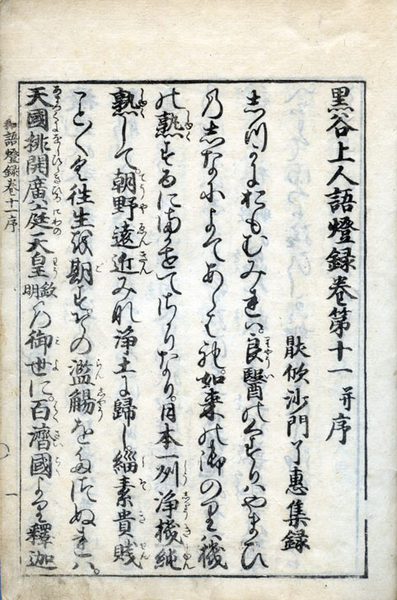 黒谷上人語燈録巻第十一 并序
厭欣沙門了惠集録
しづかにおもむみれば良醫のくすりハやまひ
のしなによてあらはれ。如来の御のりハ機
の熟するにまかせてさかりなり。日本一州浄機純
熟して朝野遠近みな浄土に歸し緇素貴賤
ことごとく往生を期すその濫觴をたづぬれハ。
天國排開廣庭天皇欽明の御世に。百濟國より釋迦
和語燈録巻十一序
一